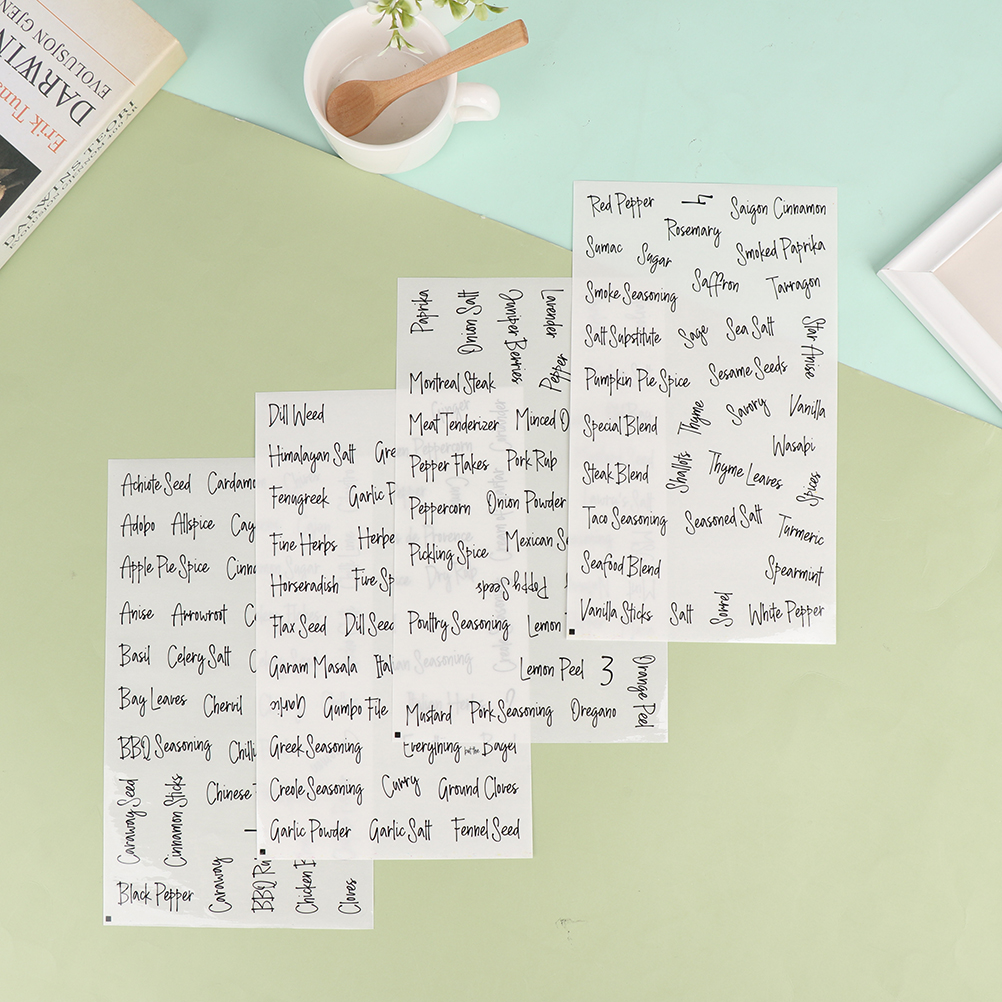 Erik Tuna
DARWIN
EVOLUSJON GJEN
Red Pepper
4
Saigon Cinnamon
Rosemary
Sumac
Sugar
Smoked Paprika
Saffron
Tarragon
Smoke Seasoning
Salt Substitute
Sage
Sea Salt
Star Anise
Pumpkin Pie Spice
Sesame Seeds
Thyme
Savory
Vanilla
Special Blend
Wasabi
Steak Blend
Shallots
Thyme Leaves
Spices
Taco Seasoning
Seasoned Salt
Turmeric
Seafood Blend
Spearmint
Vanilla Sticks
Salt
Sorrel
White Pepper
Paprika
Onion Salt
Juniper Berries
Lavender
Montreal Steak
Pepper
Meat Tenderizer
Minced O
Pepper Flakes
Pork Rub
Peppercorn
Onion Powder
Pickling Spice
Mexican Se
Poppy Seeds
Poultry Seasoning
Lemon
Lemon Peel
3
Orange Peel
Mustard
Pork Seasoning
Oregano
Dill Weed
Himalayan Salt
Gre
Fenugreek
Garlic P
Fine Herbs
Herbe
Horseradish
Five Sp
Flax Seed
Dill Seed
Garam Masala
Italian Seasoning
Garlic
Gumbo File
Greek Seasoning
Everything but the Bagel
Creole Seasoning
Curry
Ground Cloves
Garlic Powder
Garlic Salt
Fennel Seed
Achiote Seed
Cardamo
Adobo
Allspice
Cay
Apple Pie Spice
Cinn
Anise
Arrowroot
Basil
Celery Salt
Bay Leaves
Chervil
BBQ Seasoning
Chili
Caraway Seed
Cinnamon Sticks
Chinese
Black Pepper
Caraway
BBQ Ru
Chicken
Cloves